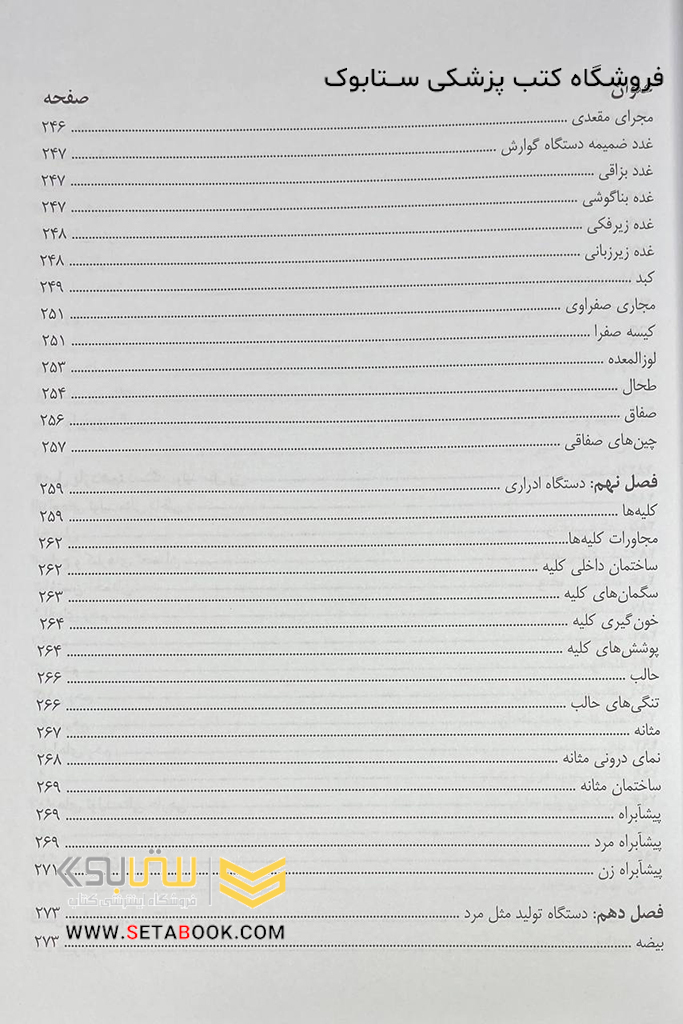 فروشگاه کتب پزشکی ستابوک
عنوان صفحه
مجرای مقعدی ۲۴۶
غدد ضمیمه دستگاه گوارش ۲۴۷
غدد بزاقی ۲۴۷
غده بناگوشی ۲۴۷
غده زیرفکی ۲۴۸
غده زیرزبانی ۲۴۸
کبد ۲۴۹
مجاری صفراوی ۲۵۱
کیسه صفرا ۲۵۱
لوزالمعده ۲۵۳
طحال ۲۵۴
صفاق ۲۵۶
چین‌های صفاقی ۲۵۷
فصل نهم: دستگاه ادراری ۲۵۹
کلیه‌ها ۲۵۹
مجاورات کلیه‌ها ۲۶۲
ساختمان داخلی کلیه ۲۶۲
سگمان‌های کلیه ۲۶۳
خون‌گیری کلیه ۲۶۴
پوشش‌های کلیه ۲۶۴
حالب ۲۶۶
تنگی‌های حالب ۲۶۶
مثانه ۲۶۷
نمای درونی مثانه ۲۶۸
ساختمان مثانه ۲۶۹
پیشابراه ۲۶۹
پیشابراه مرد ۲۶۹
پیشابراه زن ۲۷۱
ستابوک
فروشگاه اینترنتی کتاب
فصل دهم: دستگاه تولید مثل مرد ۲۷۳
WWW.SETABOOK.COM
بیضه ۲۷۳